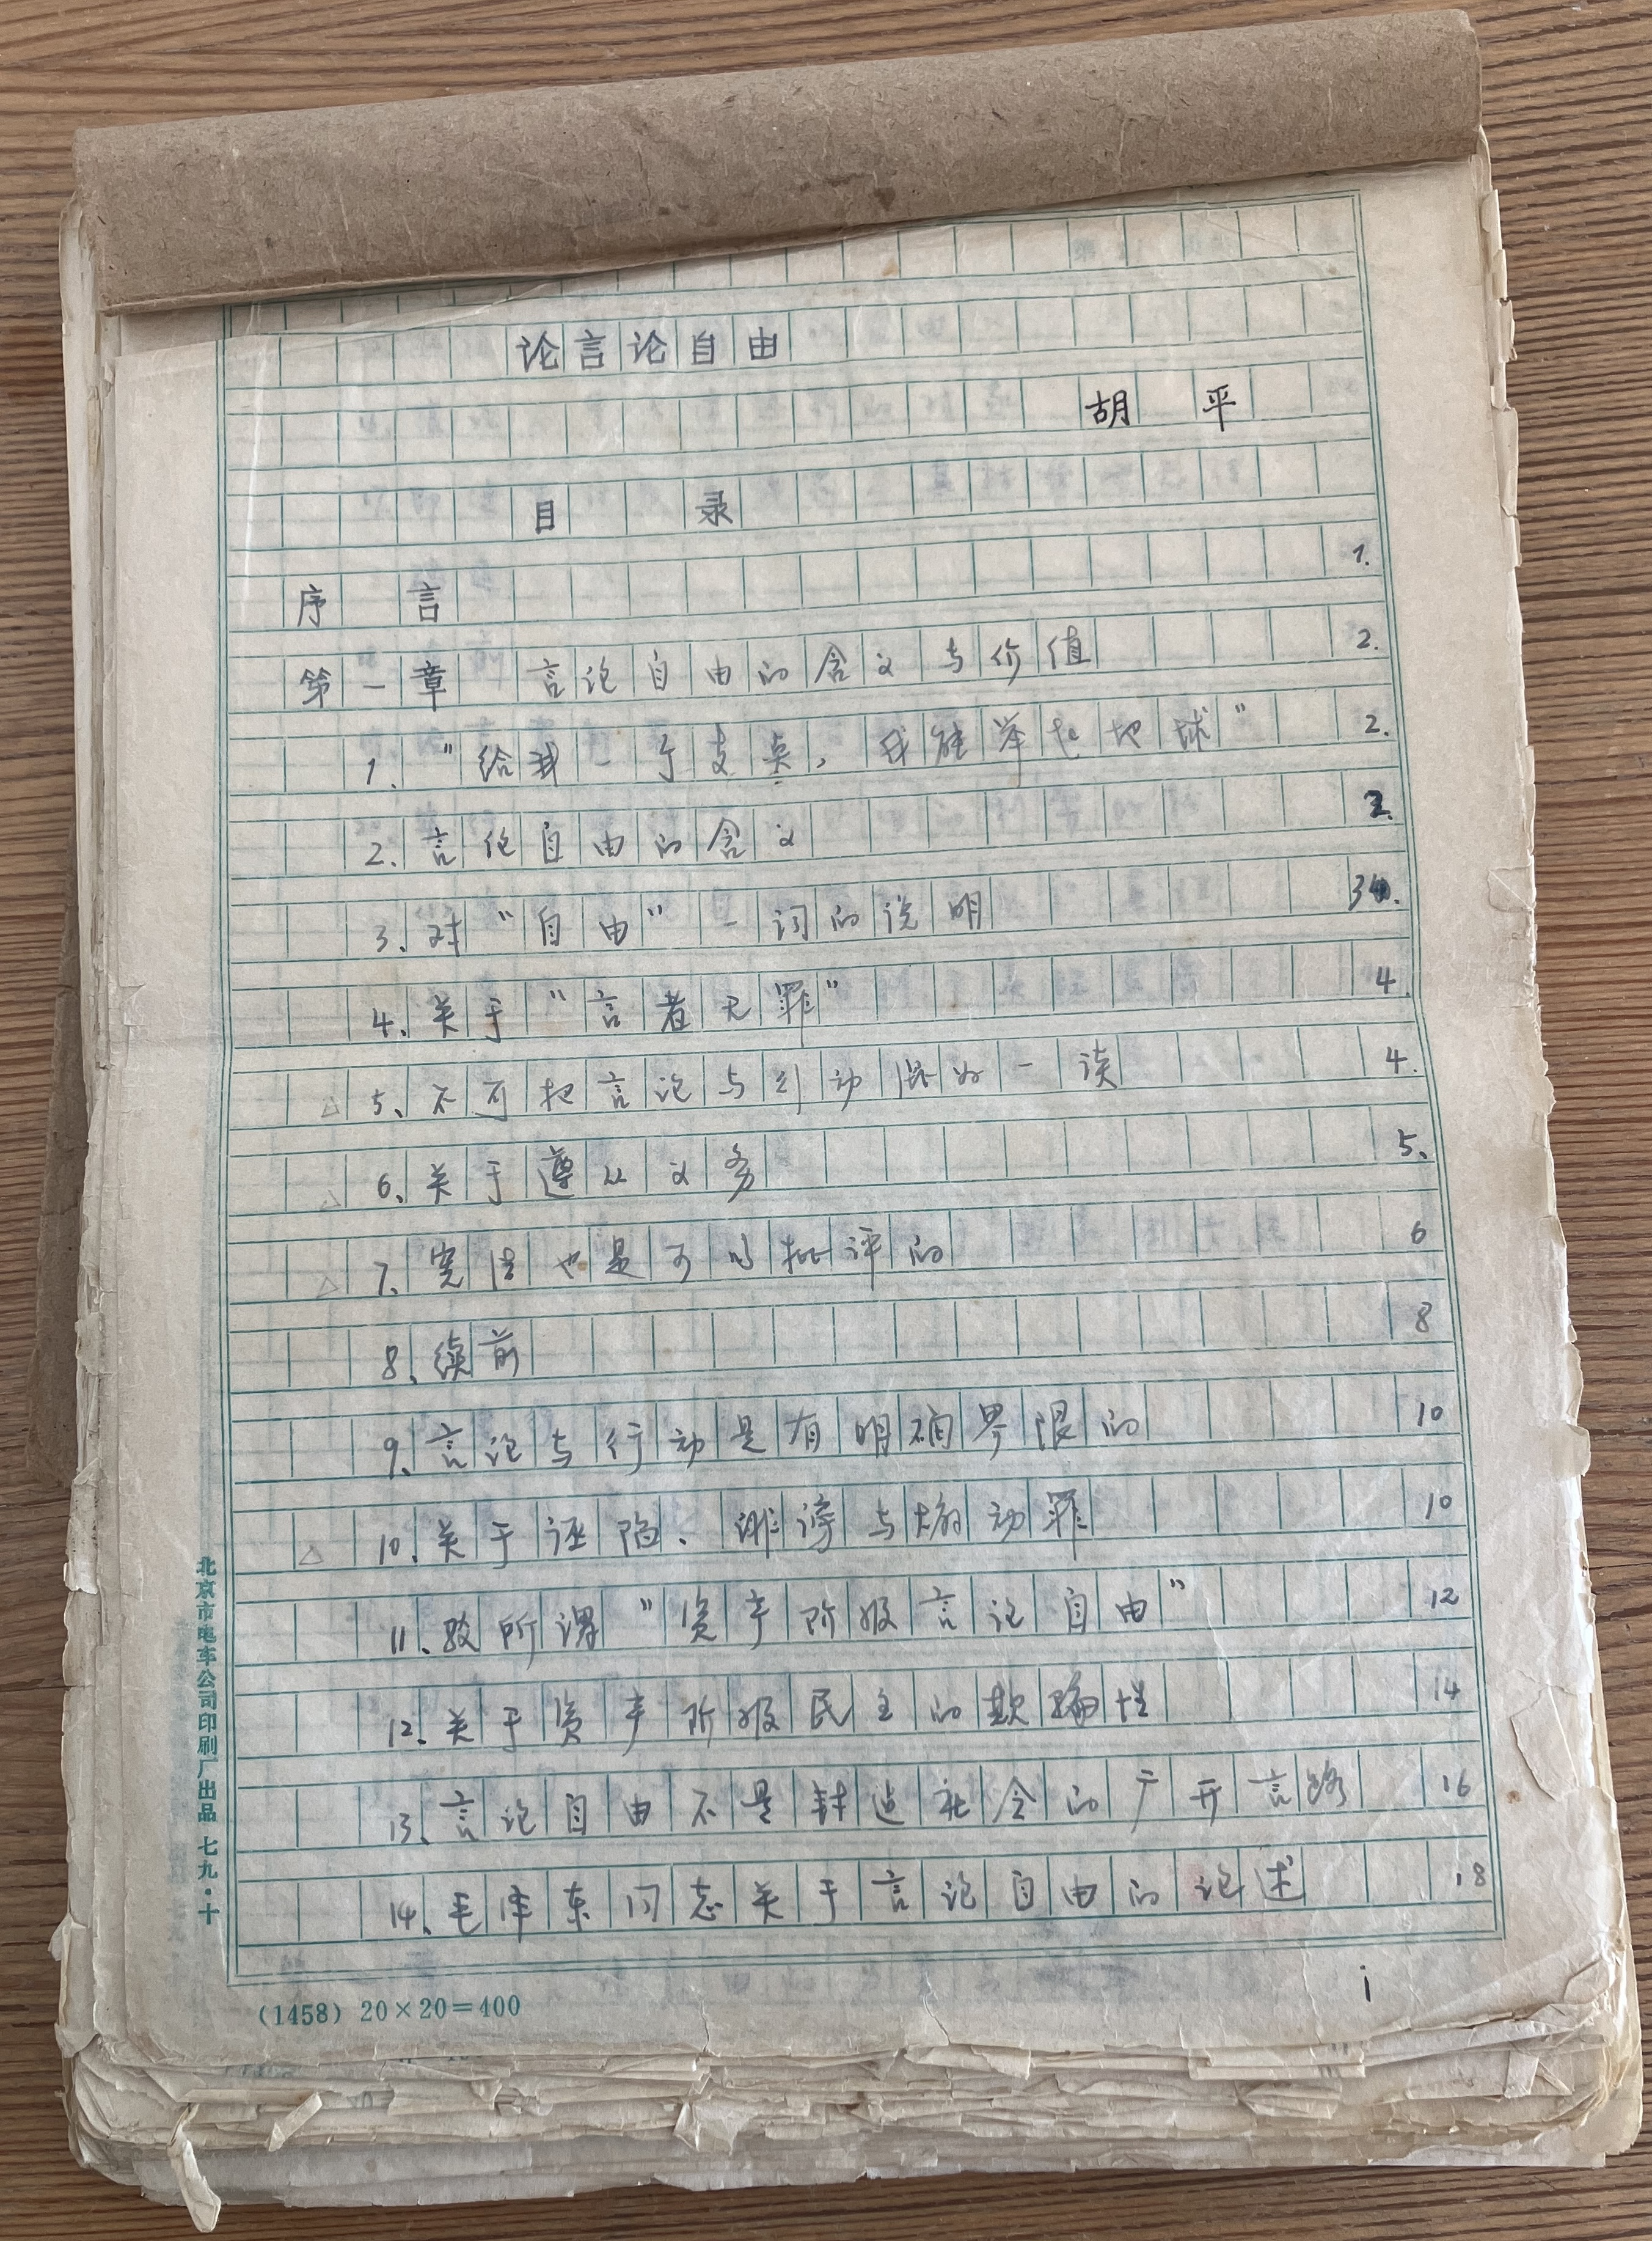 论言论自由
胡 平
目 录
序 言 1.
第一章 言论自由的含义与价值 2.
1. “给我一个支点，我能举起地球” 2.
2. 言论自由的含义
3. 对“自由”一词的说明
4. 关于“言者无罪” 4.
△ 5. 不可把言论与行动混为一谈 4.
△ 6. 关于遵从义务 5.
△ 7. 宪法也是可以批评的 6
8. 续前 8
9. 言论与行动是有明确界限的 10
△ 10. 关于诬陷、诽谤与煽动罪 10
11. 驳所谓“资产阶级言论自由” 12
12. 关于资产阶级民主的欺骗性 14
13. 言论自由不是封建社会的广开言路 16
14. 毛泽东同志关于言论自由的论述 18
i
(1458) 20×20=400
北京市电车公司印刷厂出品 七九·十